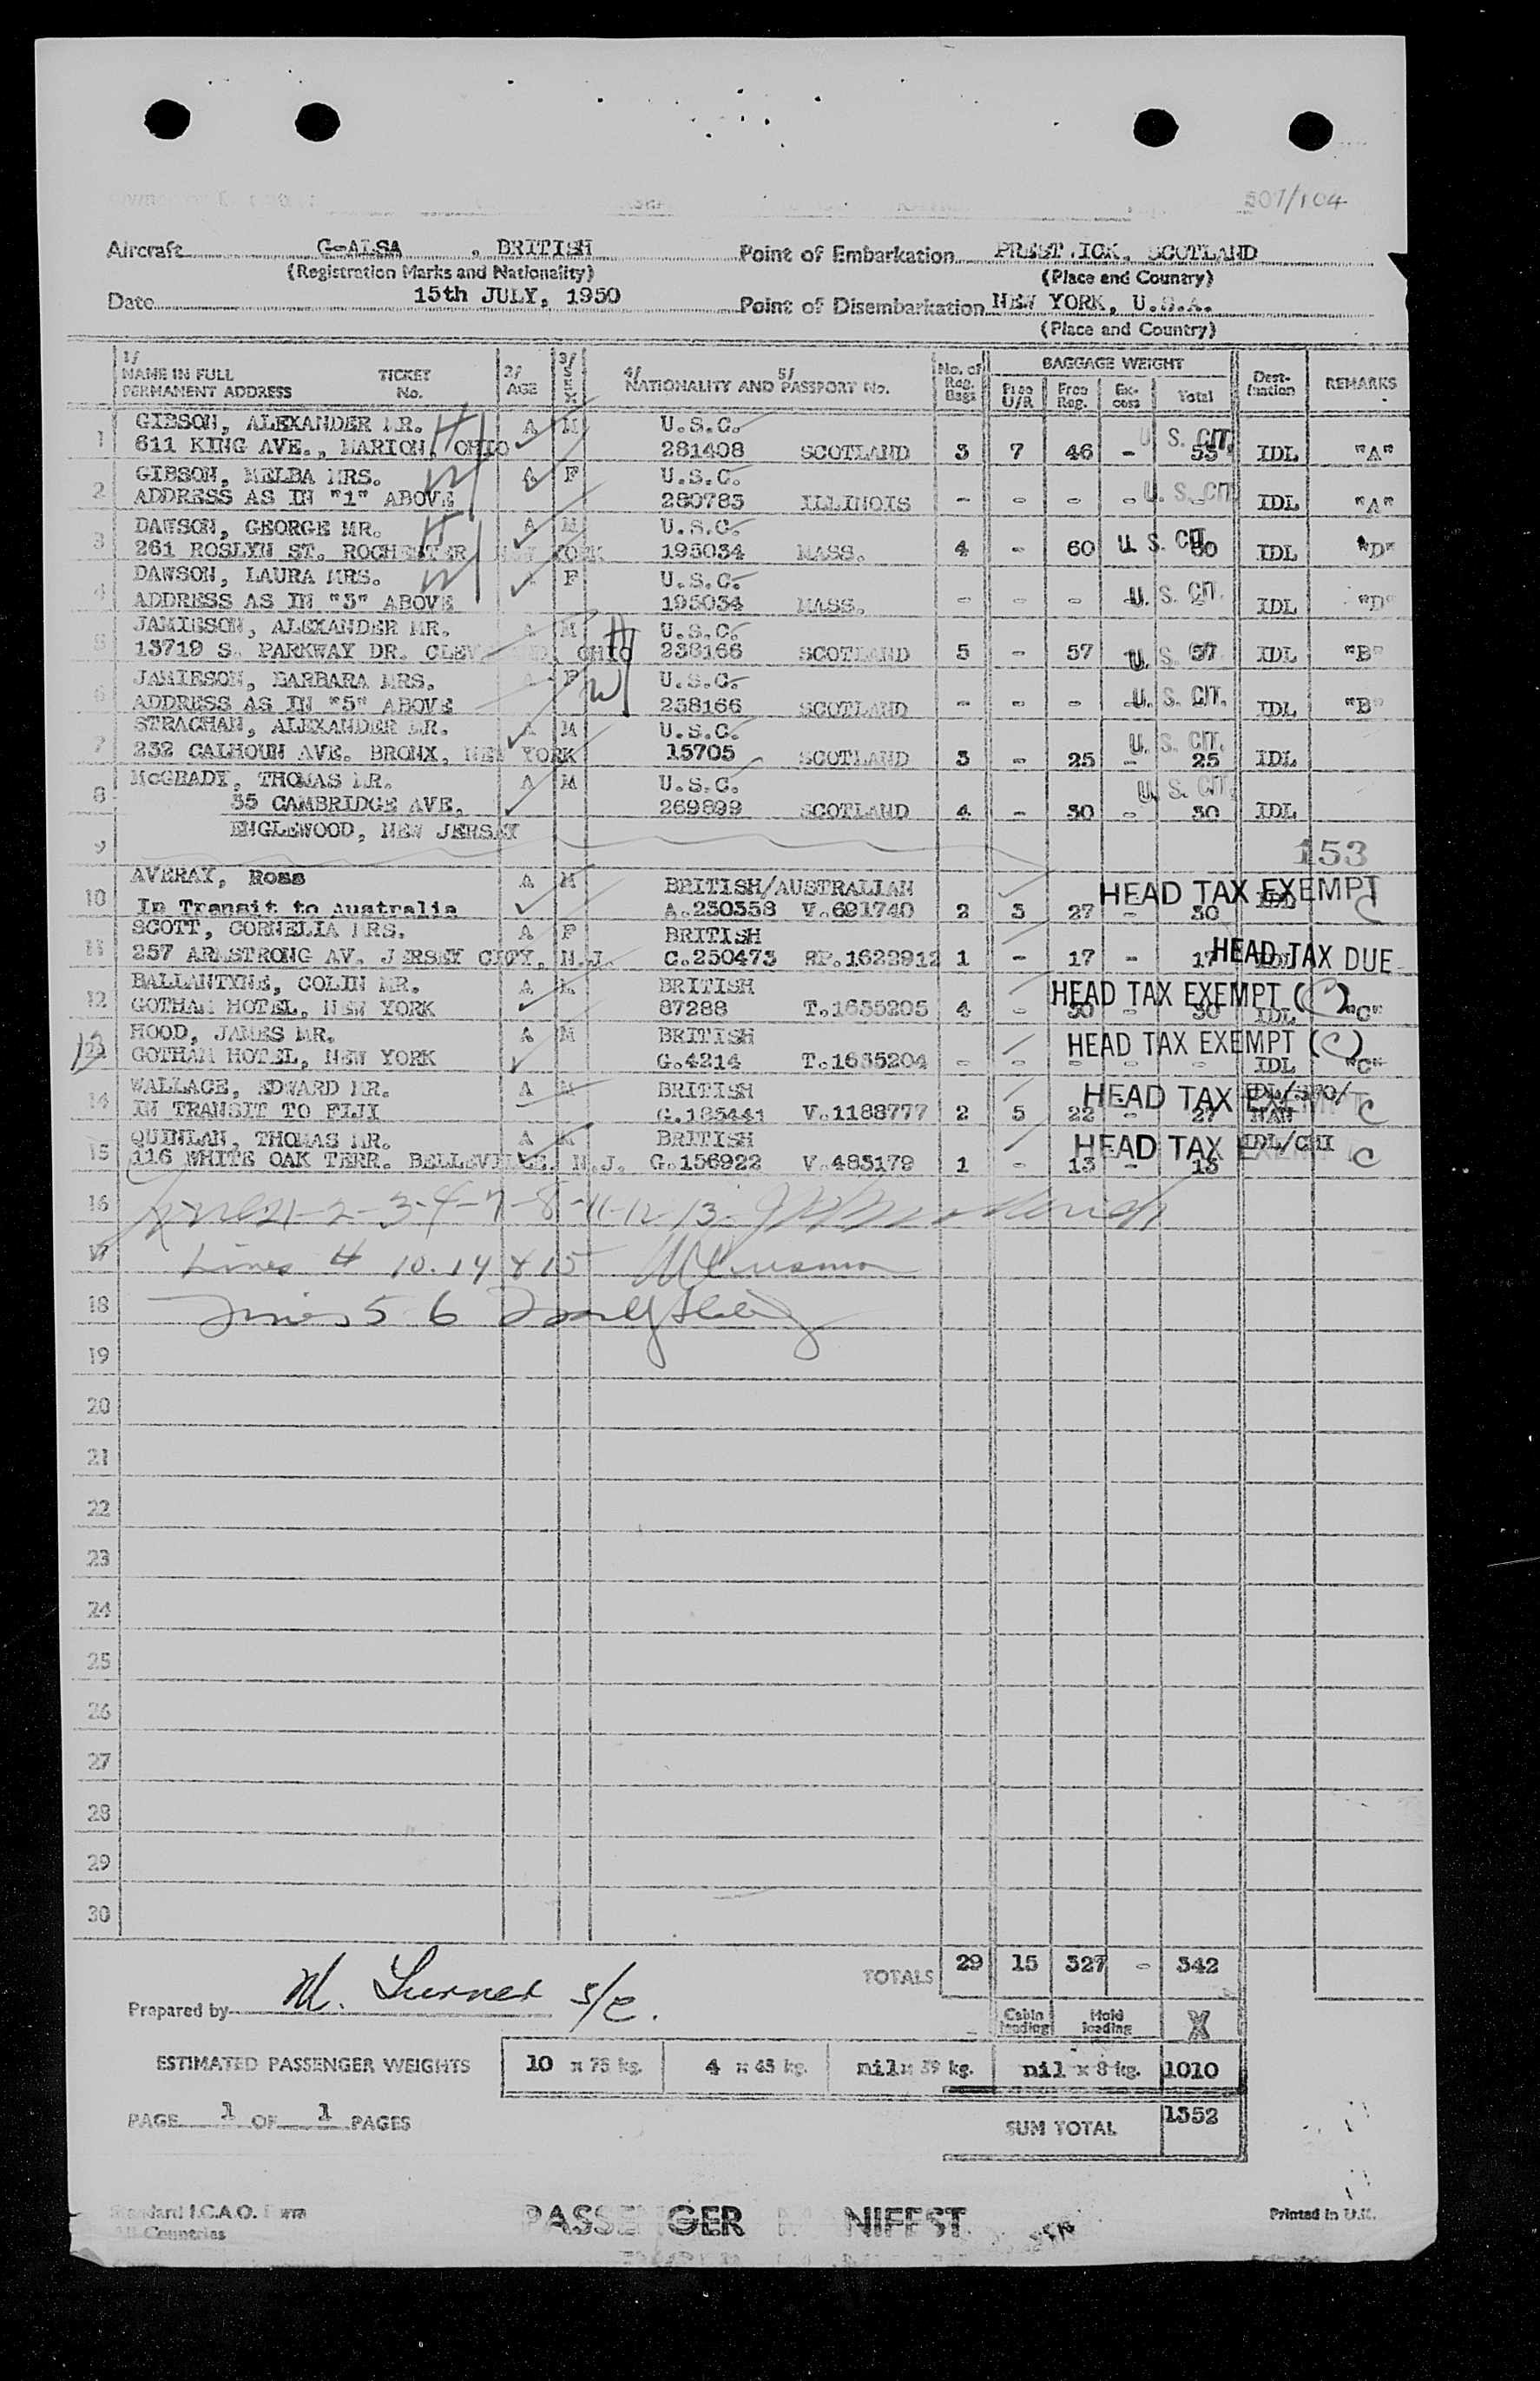 507/104
Aircraft G-ALSA , BRITISH Point of Embarkation PREST.ICK, SCOTLAND
(Registration Marks and Nationality) (Place and Country)
Date 15th JULY, 1950 Point of Disembarkation NEW YORK, U.S.A.
(Place and Country)
1/ NAME IN FULL PERMANENT ADDRESS TICKET No. 2/ AGE 3/ SEX 4/ NATIONALITY AND 5/ PASSPORT No. No. of Reg. Bags BAGGAGE WEIGHT Free U/R Free Reg. Ex-cess Total Dest-ination REMARKS
1 GIBSON, ALEXANDER MR. H A M U.S.C. U.S. CIT.
611 KING AVE., MARION, OHIO 281408 SCOTLAND 3 7 46 - 53 IDL "A"
2 GIBSON, MELBA MRS. W A F U.S.C. U.S. CIT.
ADDRESS AS IN "1" ABOVE 280783 ILLINOIS - - - - - IDL "A"
3 DAWSON, GEORGE MR. H A M U.S.C. U.S. CIT.
261 ROSLYN ST. ROCHESTER, NEW YORK 195034 MASS. 4 - 60 - 60 IDL "D"
4 DAWSON, LAURA MRS. W A F U.S.C. U.S. CIT.
ADDRESS AS IN "3" ABOVE 195034 MASS. - - - - - IDL "D"
5 JAMIESON, ALEXANDER MR. A M H U.S.C. U.S. CIT.
13719 S. PARKWAY DR. CLEVELAND, OHIO 238166 SCOTLAND 5 - 57 - 57 IDL "B"
6 JAMIESON, BARBARA MRS. A F W U.S.C. U.S. CIT.
ADDRESS AS IN "5" ABOVE 238166 SCOTLAND - - - - - IDL "B"
7 STRACHAN, ALEXANDER MR. A M U.S.C. U.S. CIT.
232 CALHOUN AVE. BRONX, NEW YORK 15705 SCOTLAND 3 - 25 - 25 IDL
8 McGHADY, THOMAS MR. A M U.S.C. U.S. CIT.
35 CAMBRIDGE AVE, 269899 SCOTLAND 4 - 30 - 30 IDL
ENGLEWOOD, NEW JERSEY
9 153
10 AVERAY, Ross A M BRITISH/AUSTRALIAN HEAD TAX EXEMPT
In Transit to Australia A.230358 V.691740 2 3 27 - 30 IDL C
11 SCOTT, CORNELIA MRS. A F BRITISH HEAD TAX DUE
257 ARMSTRONG AV. JERSEY CITY, N.J. C.250473 RP.1622912 1 - 17 - 17 IDL
12 BALLANTYNE, COLIN MR. A M BRITISH HEAD TAX EXEMPT (C)
GOTHAM HOTEL, NEW YORK 87288 T.1635205 4 - 30 - 30 IDL "C"
13 HOOD, JAMES MR. A M BRITISH HEAD TAX EXEMPT (C)
GOTHAM HOTEL, NEW YORK G.4214 T.1635204 - - - - - IDL "C"
14 WALLACE, EDWARD MR. A M BRITISH HEAD TAX EXEMPT IDL/SFO/
IN TRANSIT TO FIJI G.185441 V.1188777 2 5 22 - 27 NAN C
15 QUINLAN, THOMAS MR. A M BRITISH HEAD TAX EXEMPT IDL/CHI
116 WHITE OAK TERR. BELLEVILLE, N.J. G.156922 V.483179 1 - 13 - 13 C
16 Lines 1-2-3-4-7-8-11-12-13
17 Lines # 10. 14 & 15
18 Lines 5 6
19
20
21
22
23
24
25
26
27
28
29
30
TOTALS 29 15 327 - 342
Prepared by M. Turner S/C. Cabin loading Hold loading X
ESTIMATED PASSENGER WEIGHTS 10 x 75 kg. 4 x 65 kg. nil x 39 kg. nil x 8 kg. 1010
PAGE 1 OF 1 PAGES SUM TOTAL 1352
Standard I.C.A.O. Form
All Countries
PASSENGER MANIFEST
Printed in U.K.